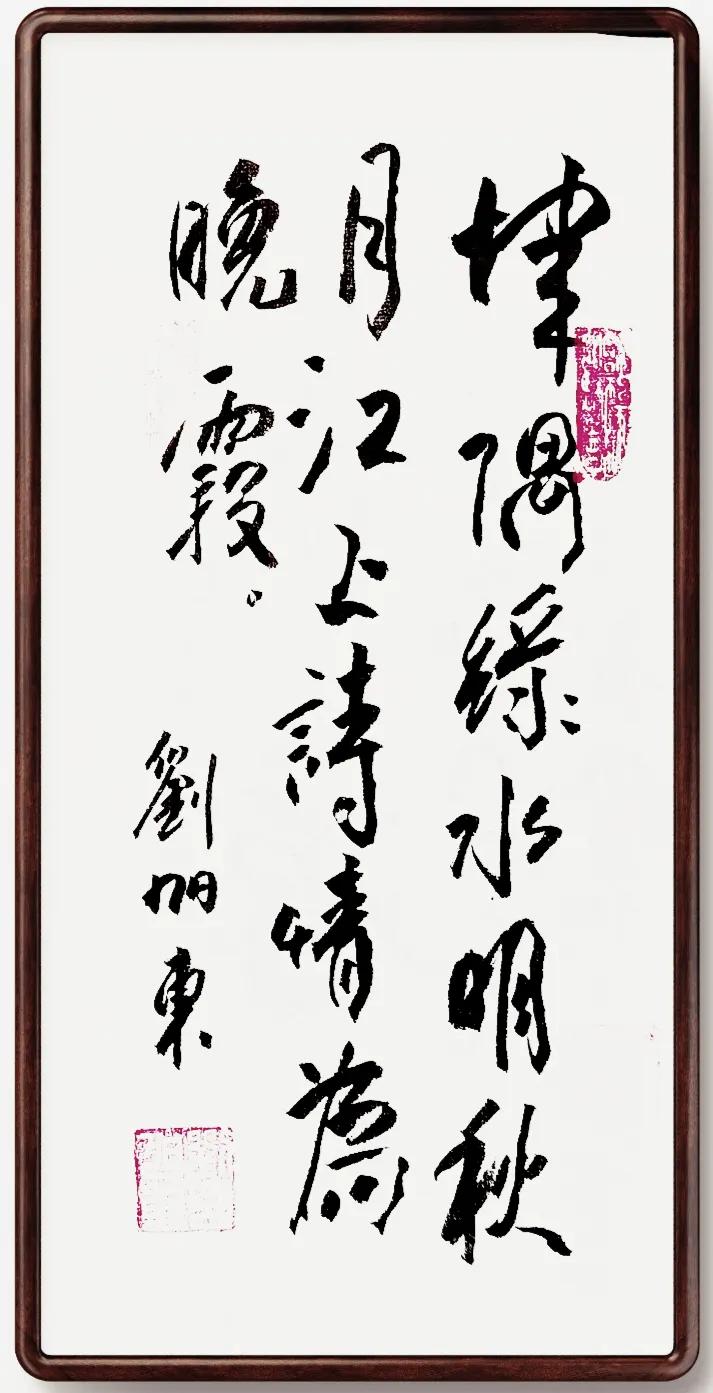 隅綠水明秋
月江上詩情為
晚霞。
劉旭東